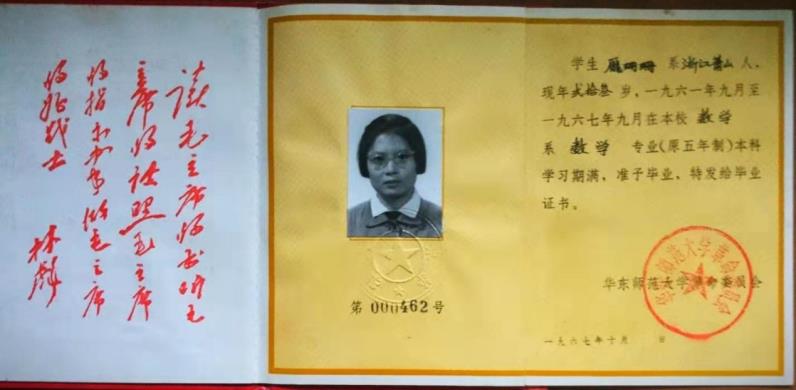 读毛主席的书听毛
主席的话照毛主席
的指示办事做毛主席
的好战士
林彪
第000462号
学生 珊珊 系浙江萧山人，
现年贰拾叁岁，一九六一年九月至
一九六七年九月在本校 数学
系 数学 专业（原五年制）本科
学习期满，准予毕业，特发给毕业
证书。
华东师范大学革命委员会
华东师范大学革命委员会
一九六七年十月 日